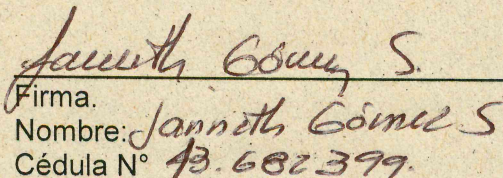 Janneth Gómez S.
Firma.
Nombre: Janneth Gómez S
Cédula N° 43.682399.